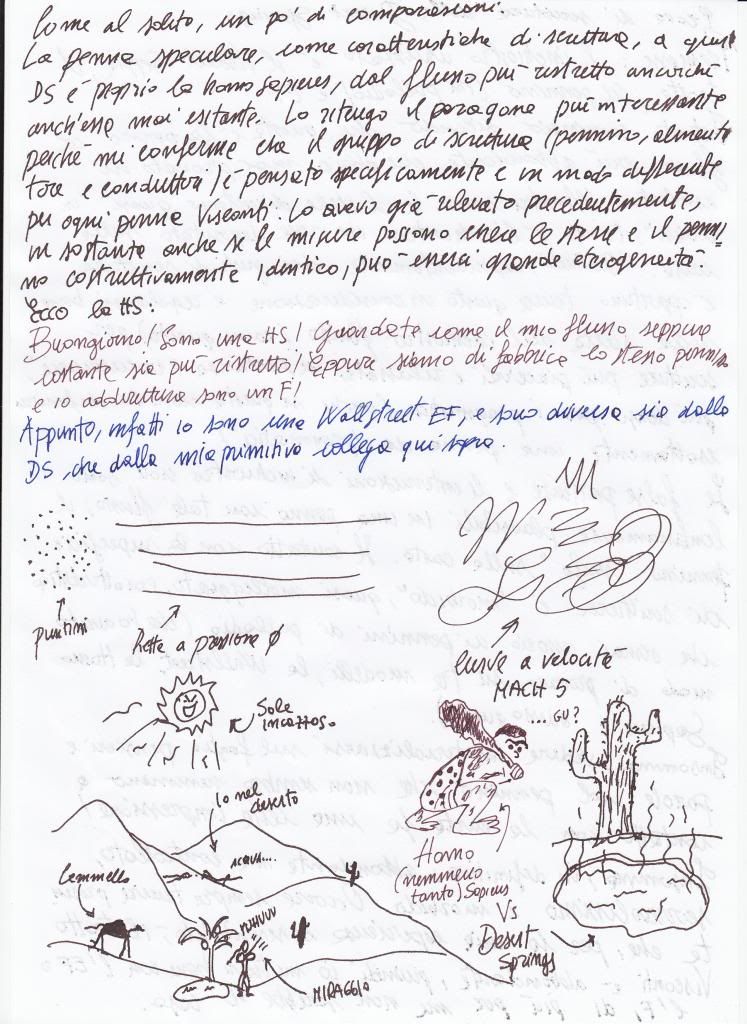 Come al solito, un po' di comparazioni.
La penna speculare, come caratteristiche di scrittura, a questa
DS è proprio la homo sapiens, dal flusso più ristretto ancorché
anch'essa mai esitante. Lo ritengo il paragone più interessante
perché mi conferma che il gruppo di scrittura (pennino, alimenta
tore e conduttori) è pensato specificamente e in modo differente
per ogni penna Visconti. Lo avevo già rilevato precedentemente,
in sostanza anche se le misure possono essere le stesse e il penni=
no costruttivamente identico, può esserci grande eterogeneità.
Ecco la HS:
Buongiorno! Sono una HS! Guardate come il mio flusso seppure
costante sia più ristretto! Eppure siamo di fabbrica lo stesso pennino
e io addirittura sono un F!
Appunto, infatti io sono una Wallstreet EF, e sono diversa sia dalla
DS, che dalla mia primitiva collega qui sopra.
puntini
Rette a pressione 0
Curve a velocità
MACH 5
Sole
incazzoso
...GU?
Io nel
deserto
Cammello
MIRAGGIO
Homo
(nemmeno
tanto) Sapiens
Vs
Desert
Springs